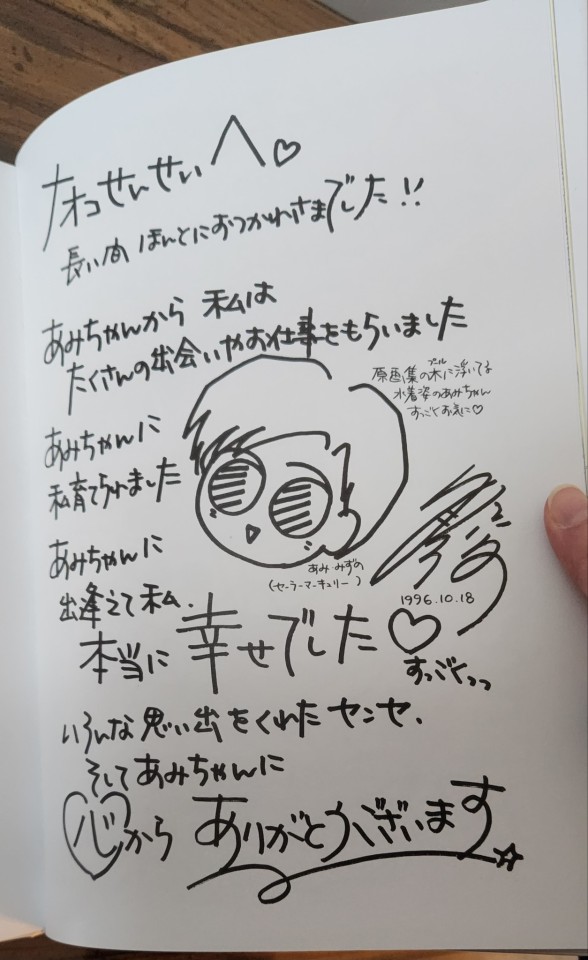 ナオコせんせいへ♡
長い間 ほんとにおつかれさまでした!!
あみちゃんから 私は
たくさんの出会いやお仕事をもらいました
原画集の水に浮いてる
プール
水着姿のあみちゃん
すっごくお気に♡
あみちゃんに
私育てられました
あみちゃんに
出逢えて私、
あみ・みずの
(セーラーマーキュリー)
1996.10.18
本当に幸せでした♡
すっごくっっ
いろんな思い出をくれたセンセ、
そしてあみちゃんに
心から ありがとうございます☆